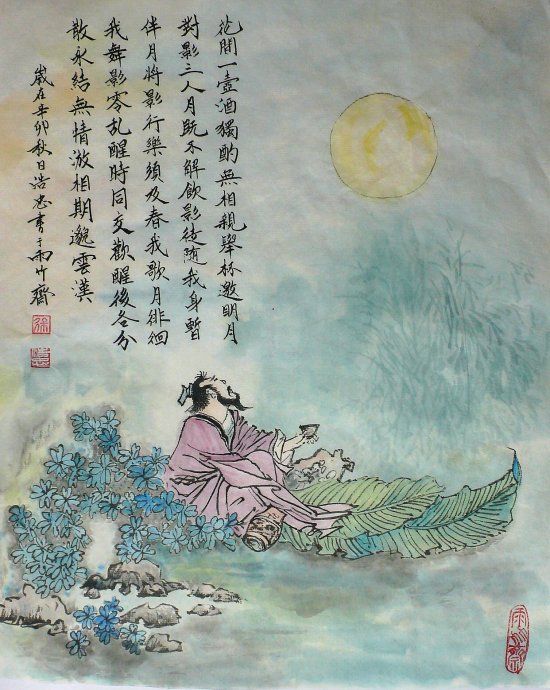 花間一壺酒獨酌無相親舉杯邀明月
對影三人月既不解飲影徒隨我身暫
伴月將影行樂須及春我歌月徘徊
我舞影零乱醒時同交歡醒後各分
散永結無情游相期邈雲漢
歲在辛卯秋日浩忠書于雨竹齋